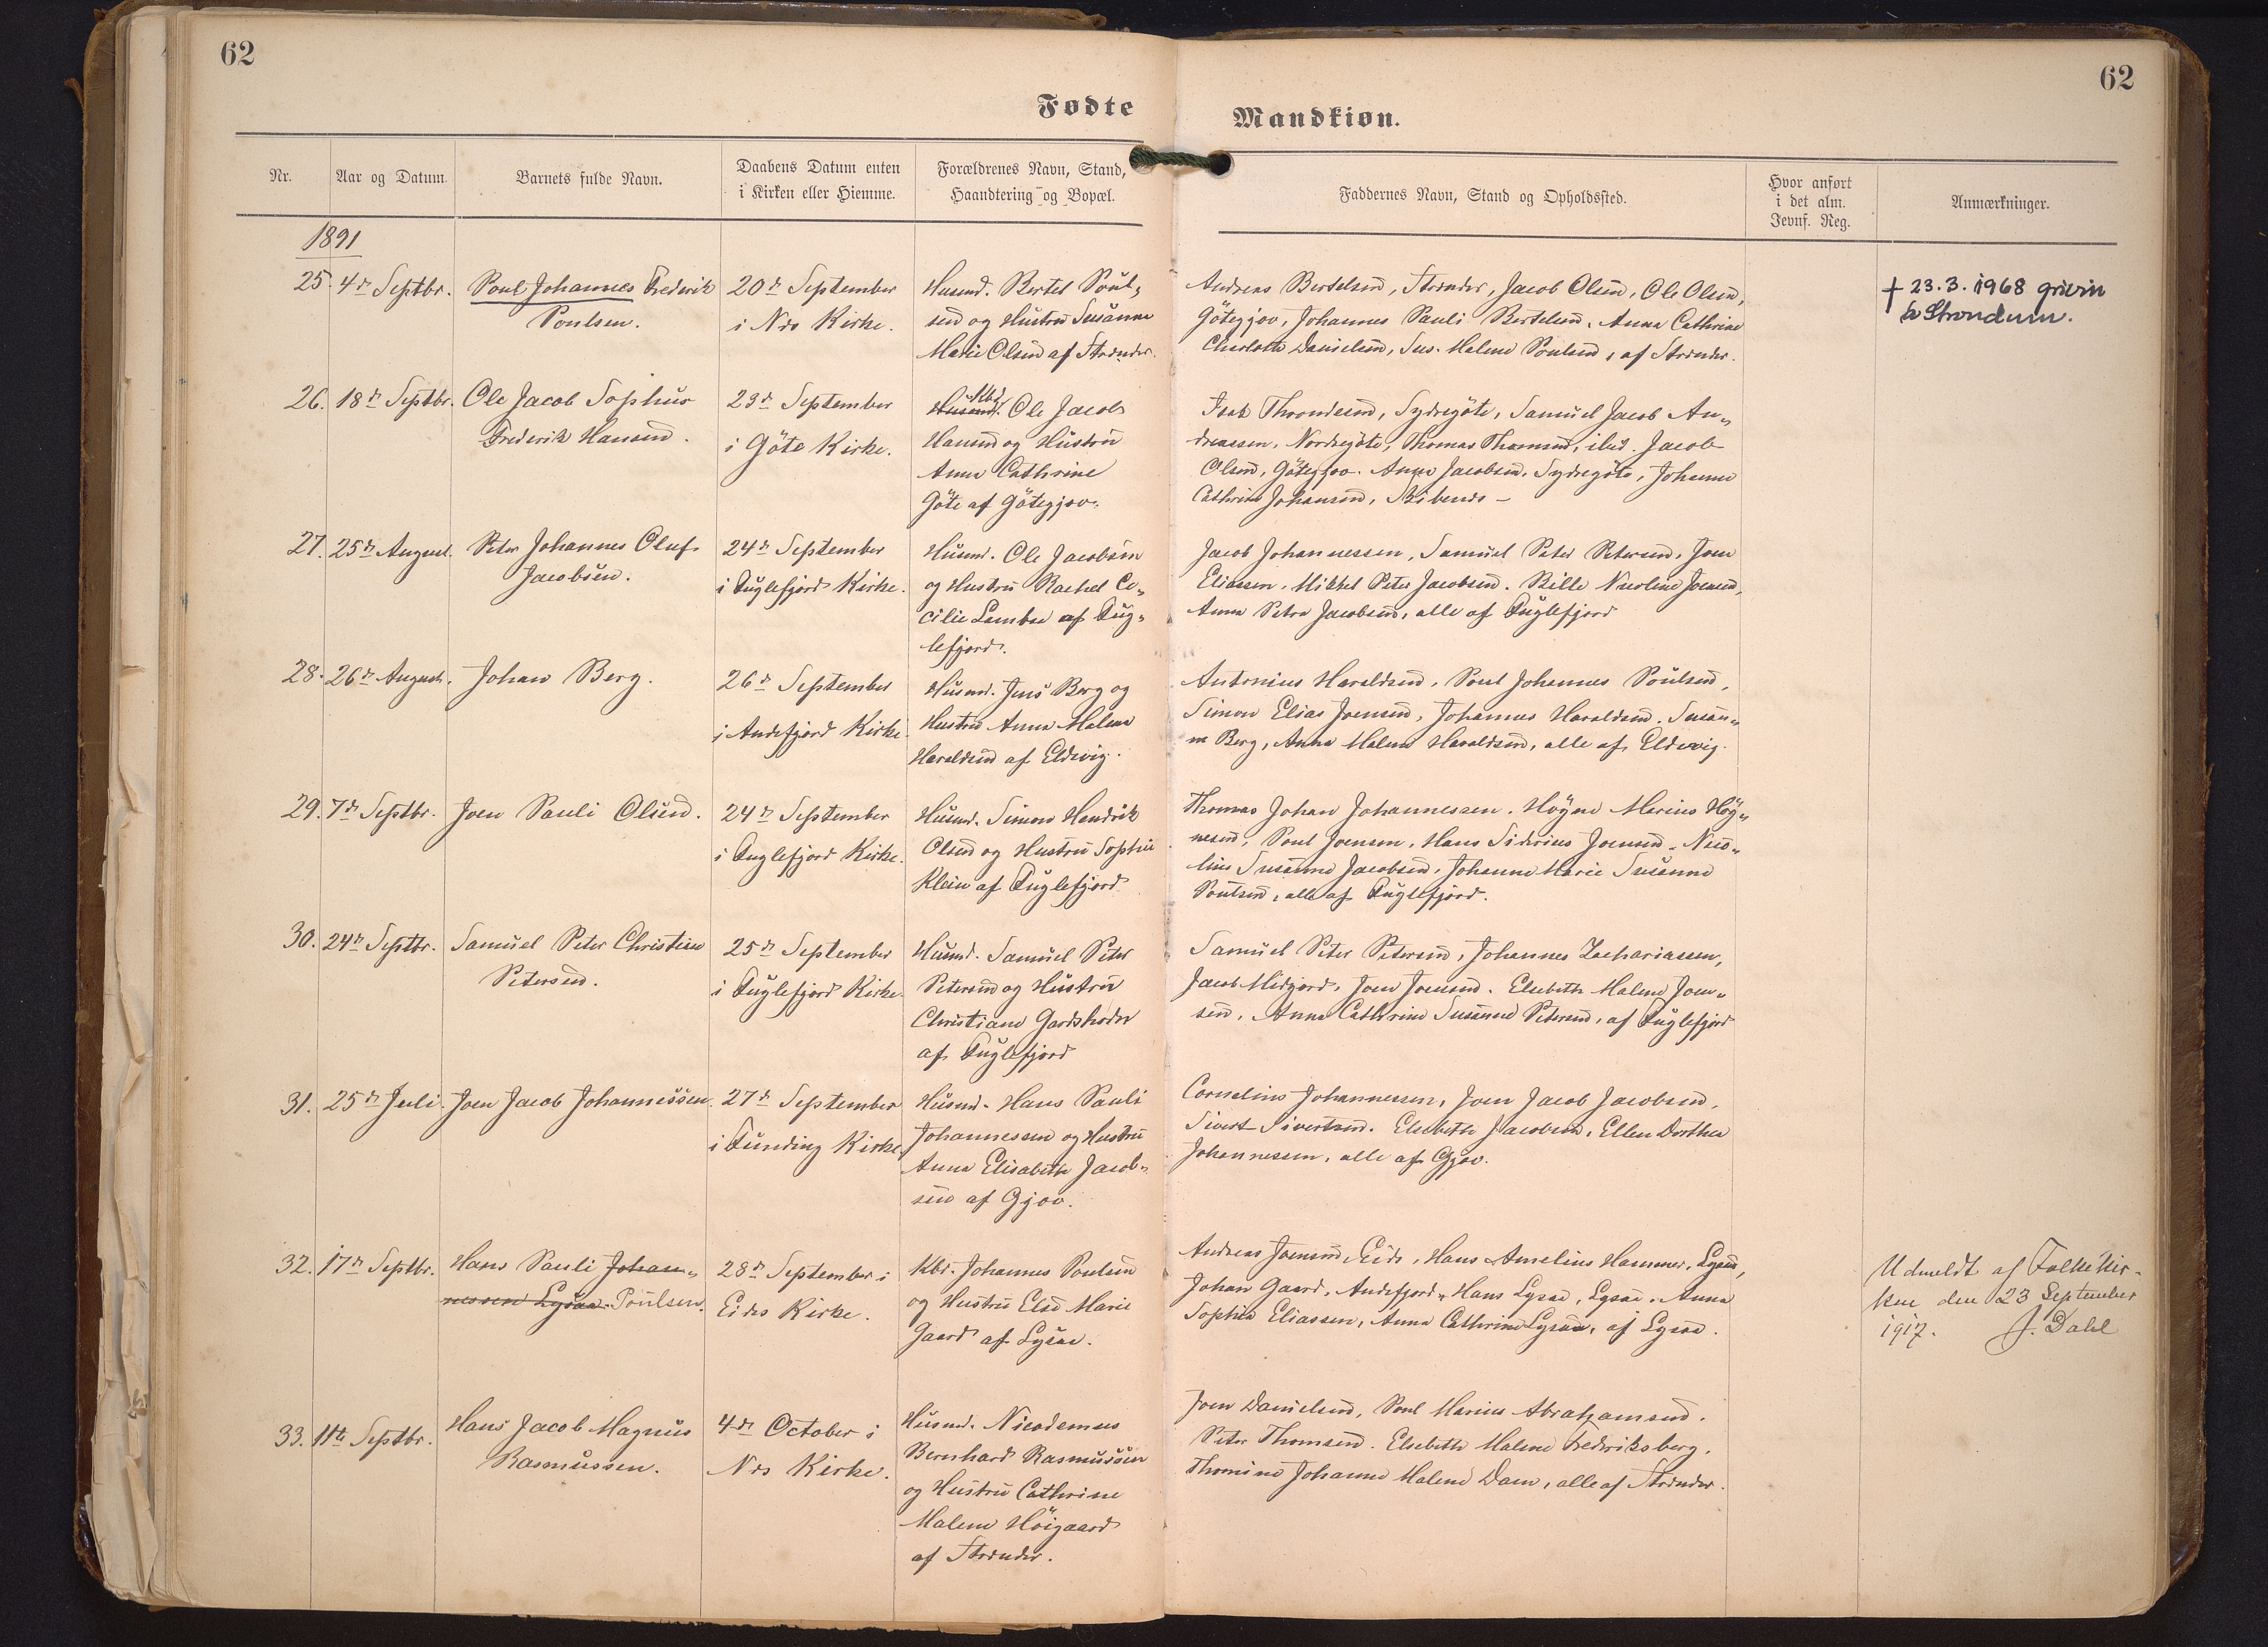 62
62
Fødte
Mandkiøn.
Nr.
Aar og Datum.
Barnets fulde Navn.
Daabens Datum enten
i Kirken eller Hiemme.
Forældrenes Navn, Stand,
Haandtering og Bopæl.
Faddernes Navn, Stand og Opholdssted.
Hvor anført
i det alm.
Jevnf. Reg.
Anmærkninger.
1891
25. 4de Septbr.
Poul Johannes Frederik
Poulsen.
20de September
i Næs Kirke.
Husmd. Bertel Poul-
sen og Hustru Susanne
Marie Olsen af Strænder.
Andreas Bertelsen, Strænder, Jacob Olsen, Ole Olsen,
Götegjov, Johannes Pauli Bertelsen, Anna Cathrine
Charlotte Danielsen, Sus. Malene Poulsen, af Strænder.
† 23.3.1968 grivin
à Strondum.
26. 18de Septbr.
Ole Jacob Sophus
Frederik Hansen.
23de September
i Göte Kirke.
Husmd. Kbr. Ole Jacob
Hansen og Hustru
Anna Cathrine
Göte af Götegjov.
Isak Throndesen, Sydregöte, Samuel Jacob An-
dreassen, Nordregöte, Thomas Thomsen, ibid. Jacob
Olsen, Götegjov. Anna Jacobsen, Sydregöte, Johanne
Cathrine Johansen,
27. 25de August.
Peter Johannes Oluf
Jacobsen.
24de September
i Fuglefjord Kirke.
Husmd. Ole Jacobsen
og Hustru Rachel Ce-
cilie Lamhu af Fug-
lefjord.
Jacob Johannessen, Samuel Peter Petersen, Joen
Eliassen, Mikkel Peter Jacobsen. Bille Nicoline Joensen,
Anna Petra Jacobsen, alle af Fuglefjord
28. 26de August.
Johan Berg.
26de September
i Andefjord Kirke.
Husmd. Jens Berg og
Hustru Anna Malene
Haraldsen af Eldevig.
Antonius Haraldsen, Poul Johannes Poulsen,
Simon Elias Joensen, Johannes Haraldsen. Susan-
ne Berg, Anna Malene Haraldsen, alle af Eldevig.
29. 7de Septbr.
Joen Pauli Olsen.
24de September
i Fuglefjord Kirke.
Husmd. Simon Hendrik
Olsen og Hustru Sophie
Klein af Fuglefjord
Thomas Johan Johannessen. Högne Marius Hög-
nesen, Poul Joensen, Hans Sidirius Joensen. Nico-
line Susanne Jacobsen, Johanne Marie Susanne
Poulsen, alle af Fuglefjord.
30. 24de Septbr.
Samuel Peter Christian
Petersen.
25de September
i Fuglefjord Kirke.
Husmd. Samuel Peter
Petersen og Hustru
Christiane Gardshodn
af Fuglefjord
Samuel Peter Petersen, Johannes Zachariassen,
Jacob Midjord, Joen Joensen. Elsebeth Malene Joen-
sen, Anna Cathrine Susanne Petersen, af Fuglefjord
31. 25de Juli.
Joen Jacob Johannessen.
27de September
i Funding Kirke.
Husmd. Hans Pauli
Johannessen og Hustru
Anna Elisabeth Jacob-
sen af Gjov.
Cornelius Johannessen, Joen Jacob Jacobsen,
Sivert Sivertsen. Elsebeth Jacobsen, Ellen Dorthea
Johannessen, alle af Gjov.
32. 17de Septbr.
Hans Pauli Johan-
nessen Lysaa. Poulsen.
28de September i
Eides Kirke.
Kbr. Johannes Poulsen
og Hustru Else Marie
Gaard af Lysaa.
Andreas Joensen, Eide, Hans Amelius Hammer, Lysaa,
Johan Gaard, Andefjord, Hans Lysaa, Lysaa. Anna
Sophia Eliassen, Anna Cathrine Lysaa, af Lysaa.
Udmeldt af Folkekir-
ken den 23 September
1917. J. Dahl
33. 11te Septbr.
Hans Jacob Magnus
Rasmussen.
4de October i
Næs Kirke.
Husmd. Nicodemus
Bernhard Rasmussen
og Hustru Cathrine
Malene Höigaard
af Strænder.
Joen Danielsen, Poul Marius Abrahamsen,
Peter Thomsen. Elsebeth Malene Frederiksberg,
Thomine Johanne Malene Dam, alle af Strænder.